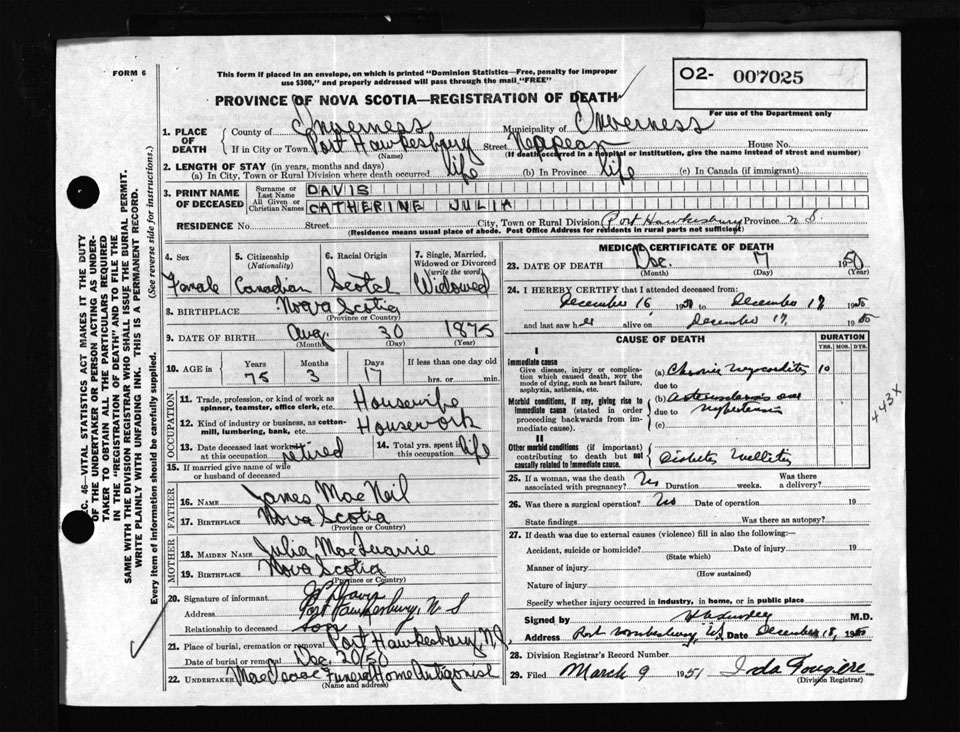 FORM 6
This form if placed in an envelope, on which is printed "Dominion Statistics—Free, penalty for improper
use $300," and properly addressed will pass through the mail "FREE"
O2- 007025
PROVINCE OF NOVA SCOTIA—REGISTRATION OF DEATH
For use of the Department only
1. PLACE OF DEATH
County of Inverness Municipality of Inverness
If in City or Town Port Hawkesbury Street Nepean House No.
(Name) (If death occurred in a hospital or institution, give the name instead of street and number)
2. LENGTH OF STAY (in years, months and days)
(a) In City, Town or Rural Division where death occurred life (b) In Province life (c) In Canada (if immigrant)
3. PRINT NAME OF DECEASED
Surname or Last Name DAVIS
All Given or Christian Names CATHERINE JULIA
RESIDENCE No. Street City, Town or Rural Division Port Hawkesbury Province N S
(Residence means usual place of abode. Post Office Address for residents in rural parts not sufficient)
4. Sex 5. Citizenship (Nationality) 6. Racial Origin 7. Single, Married, Widowed or Divorced (write the word)
Female Canadian Scotch Widowed
8. BIRTHPLACE Nova Scotia
(Province or Country)
9. DATE OF BIRTH Aug 30 1875
(Month) (Day) (Year)
10. AGE in Years Months Days If less than one day old
75 3 17 hrs. or min.
OCCUPATION
11. Trade, profession, or kind of work as spinner, teamster, office clerk, etc. Housewife
12. Kind of industry or business, as cotton-mill, lumbering, bank, etc. Housework
13. Date deceased last worked at this occupation retired
14. Total yrs. spent in this occupation life
15. If married give name of wife or husband of deceased
FATHER
16. Name James MacNeil
17. Birthplace Nova Scotia
(Province or Country)
MOTHER
18. Maiden Name Julia MacQuarrie
19. Birthplace Nova Scotia
(Province or Country)
20. Signature of informant Davis
Address Port Hawkesbury, N S
Relationship to deceased son
21. Place of burial, cremation or removal Port Hawkesbury, N.S.
Date of burial or removal Dec 20/50
22. Undertaker MacIsaac Funeral Home Antigonish
(Name and address)
MEDICAL CERTIFICATE OF DEATH
23. DATE OF DEATH Dec. 17 1950
(Month) (Day) (Year)
24. I HEREBY CERTIFY that I attended deceased from:
December 16 1950 to December 17 1950
and last saw her alive on December 17, 1950
CAUSE OF DEATH DURATION
YRS. MOS. DYS.
I
Immediate cause
Give disease, injury or complication which caused death, not the mode of dying, such as heart failure, asphyxia, asthenia, etc.
(a) Chronic myocarditis 10
due to
Morbid conditions, if any, giving rise to immediate cause (stated in order proceeding backwards from immediate cause).
(b) Arteriosclerosis and
due to hypertension
(c)
II
Other morbid conditions (if important) contributing to death but not causally related to immediate cause.
Diabetes Mellitus
443X
25. If a woman, was the death associated with pregnancy? No Duration weeks. Was there a delivery?
26. Was there a surgical operation? No Date of operation 19
State findings Was there an autopsy?
27. If death was due to external causes (violence) fill in also the following:—
Accident, suicide or homicide? Date of injury 19
(State which)
Manner of injury
(How sustained)
Nature of injury
Specify whether injury occurred in industry, in home, or in public place
Signed by M.D.
Address Port Hawkesbury, N.S. Date December 18, 1950
28. Division Registrar's Record Number
29. Filed March 9 1951 Ida Fougere
(Division Registrar)
SEC. 46—VITAL STATISTICS ACT MAKES IT THE DUTY
OF THE UNDERTAKER OR PERSON ACTING AS UNDER-
TAKER TO OBTAIN ALL THE PARTICULARS REQUIRED
IN THE "REGISTRATION OF DEATH" AND TO FILE THE
SAME WITH THE DIVISION REGISTRAR WHO SHALL ISSUE THE BURIAL PERMIT.
WRITE PLAINLY WITH UNFADING INK. THIS IS A PERMANENT RECORD.
Every item of information should be carefully supplied. (See reverse side for instructions.)